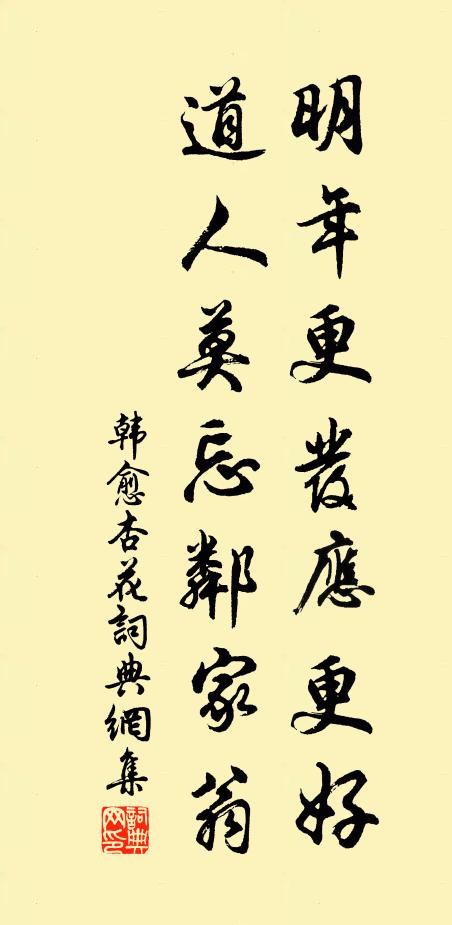 明年更發應更好
道人莫忘鄰家翁
韩愈杏花詞典網集
詞典网印